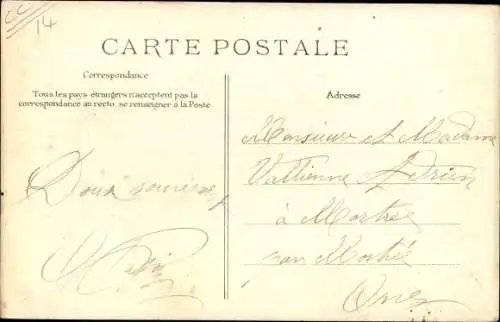 14
CARTE POSTALE
Correspondance
Tous les pays étrangers n'acceptent pas la
correspondance au recto, se renseigner à la Poste
Adresse
Doux souvenir
Monsieur et Madame
Vallienne Adrien
à Mortrée
par Mortrée
Orne